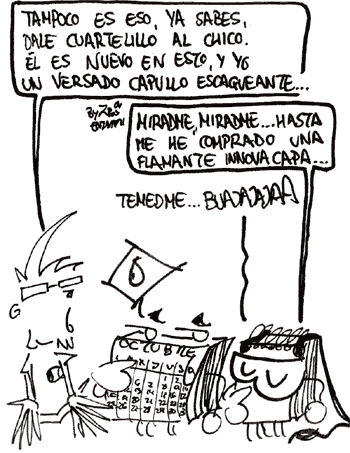 TAMPOCO ES ESO, YA SABES,
DALE CUARTELILLO AL CHICO.
ÉL ES NUEVO EN ESTO, Y YO
UN VERSADO CAPULLO ESCAQUEANTE...
MIRADME, MIRADME... HASTA
ME HE COMPRADO UNA
FLAMANTE INNOVACAPA...
TENEDME... BUAJAJAJAA
OCTUBRE